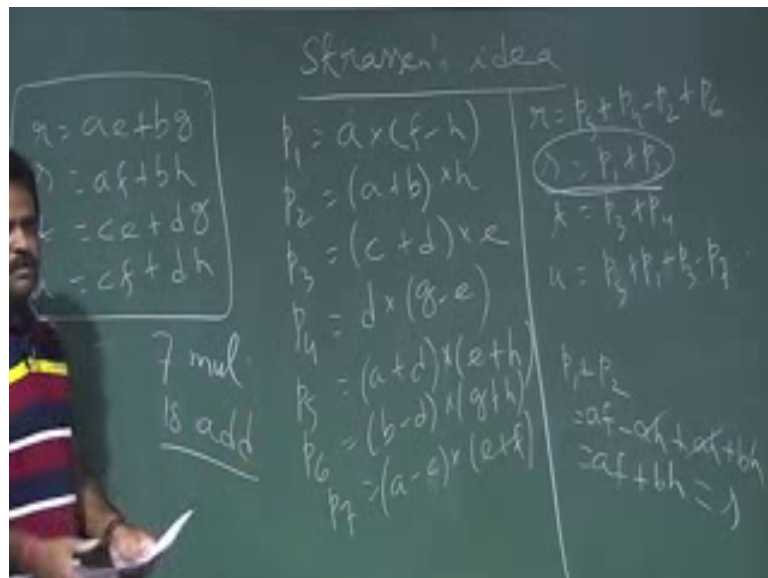 Strassen's idea
r = ae+bg
s = af+bh
t = ce+dg
u = cf+dh
7 mul
18 add
p₁ = a×(f-h)
p₂ = (a+b)×h
p₃ = (c+d)×e
p₄ = d×(g-e)
p₅ = (a+d)×(e+h)
p₆ = (b-d)×(g+h)
p₇ = (a-c)×(e+f)
r = p₅+p₄-p₂+p₆
s = p₁+p₂
t = p₃+p₄
u = p₅+p₁-p₃-p₇
p₁+p₂
=af-ah+ah+bh
=af+bh=s